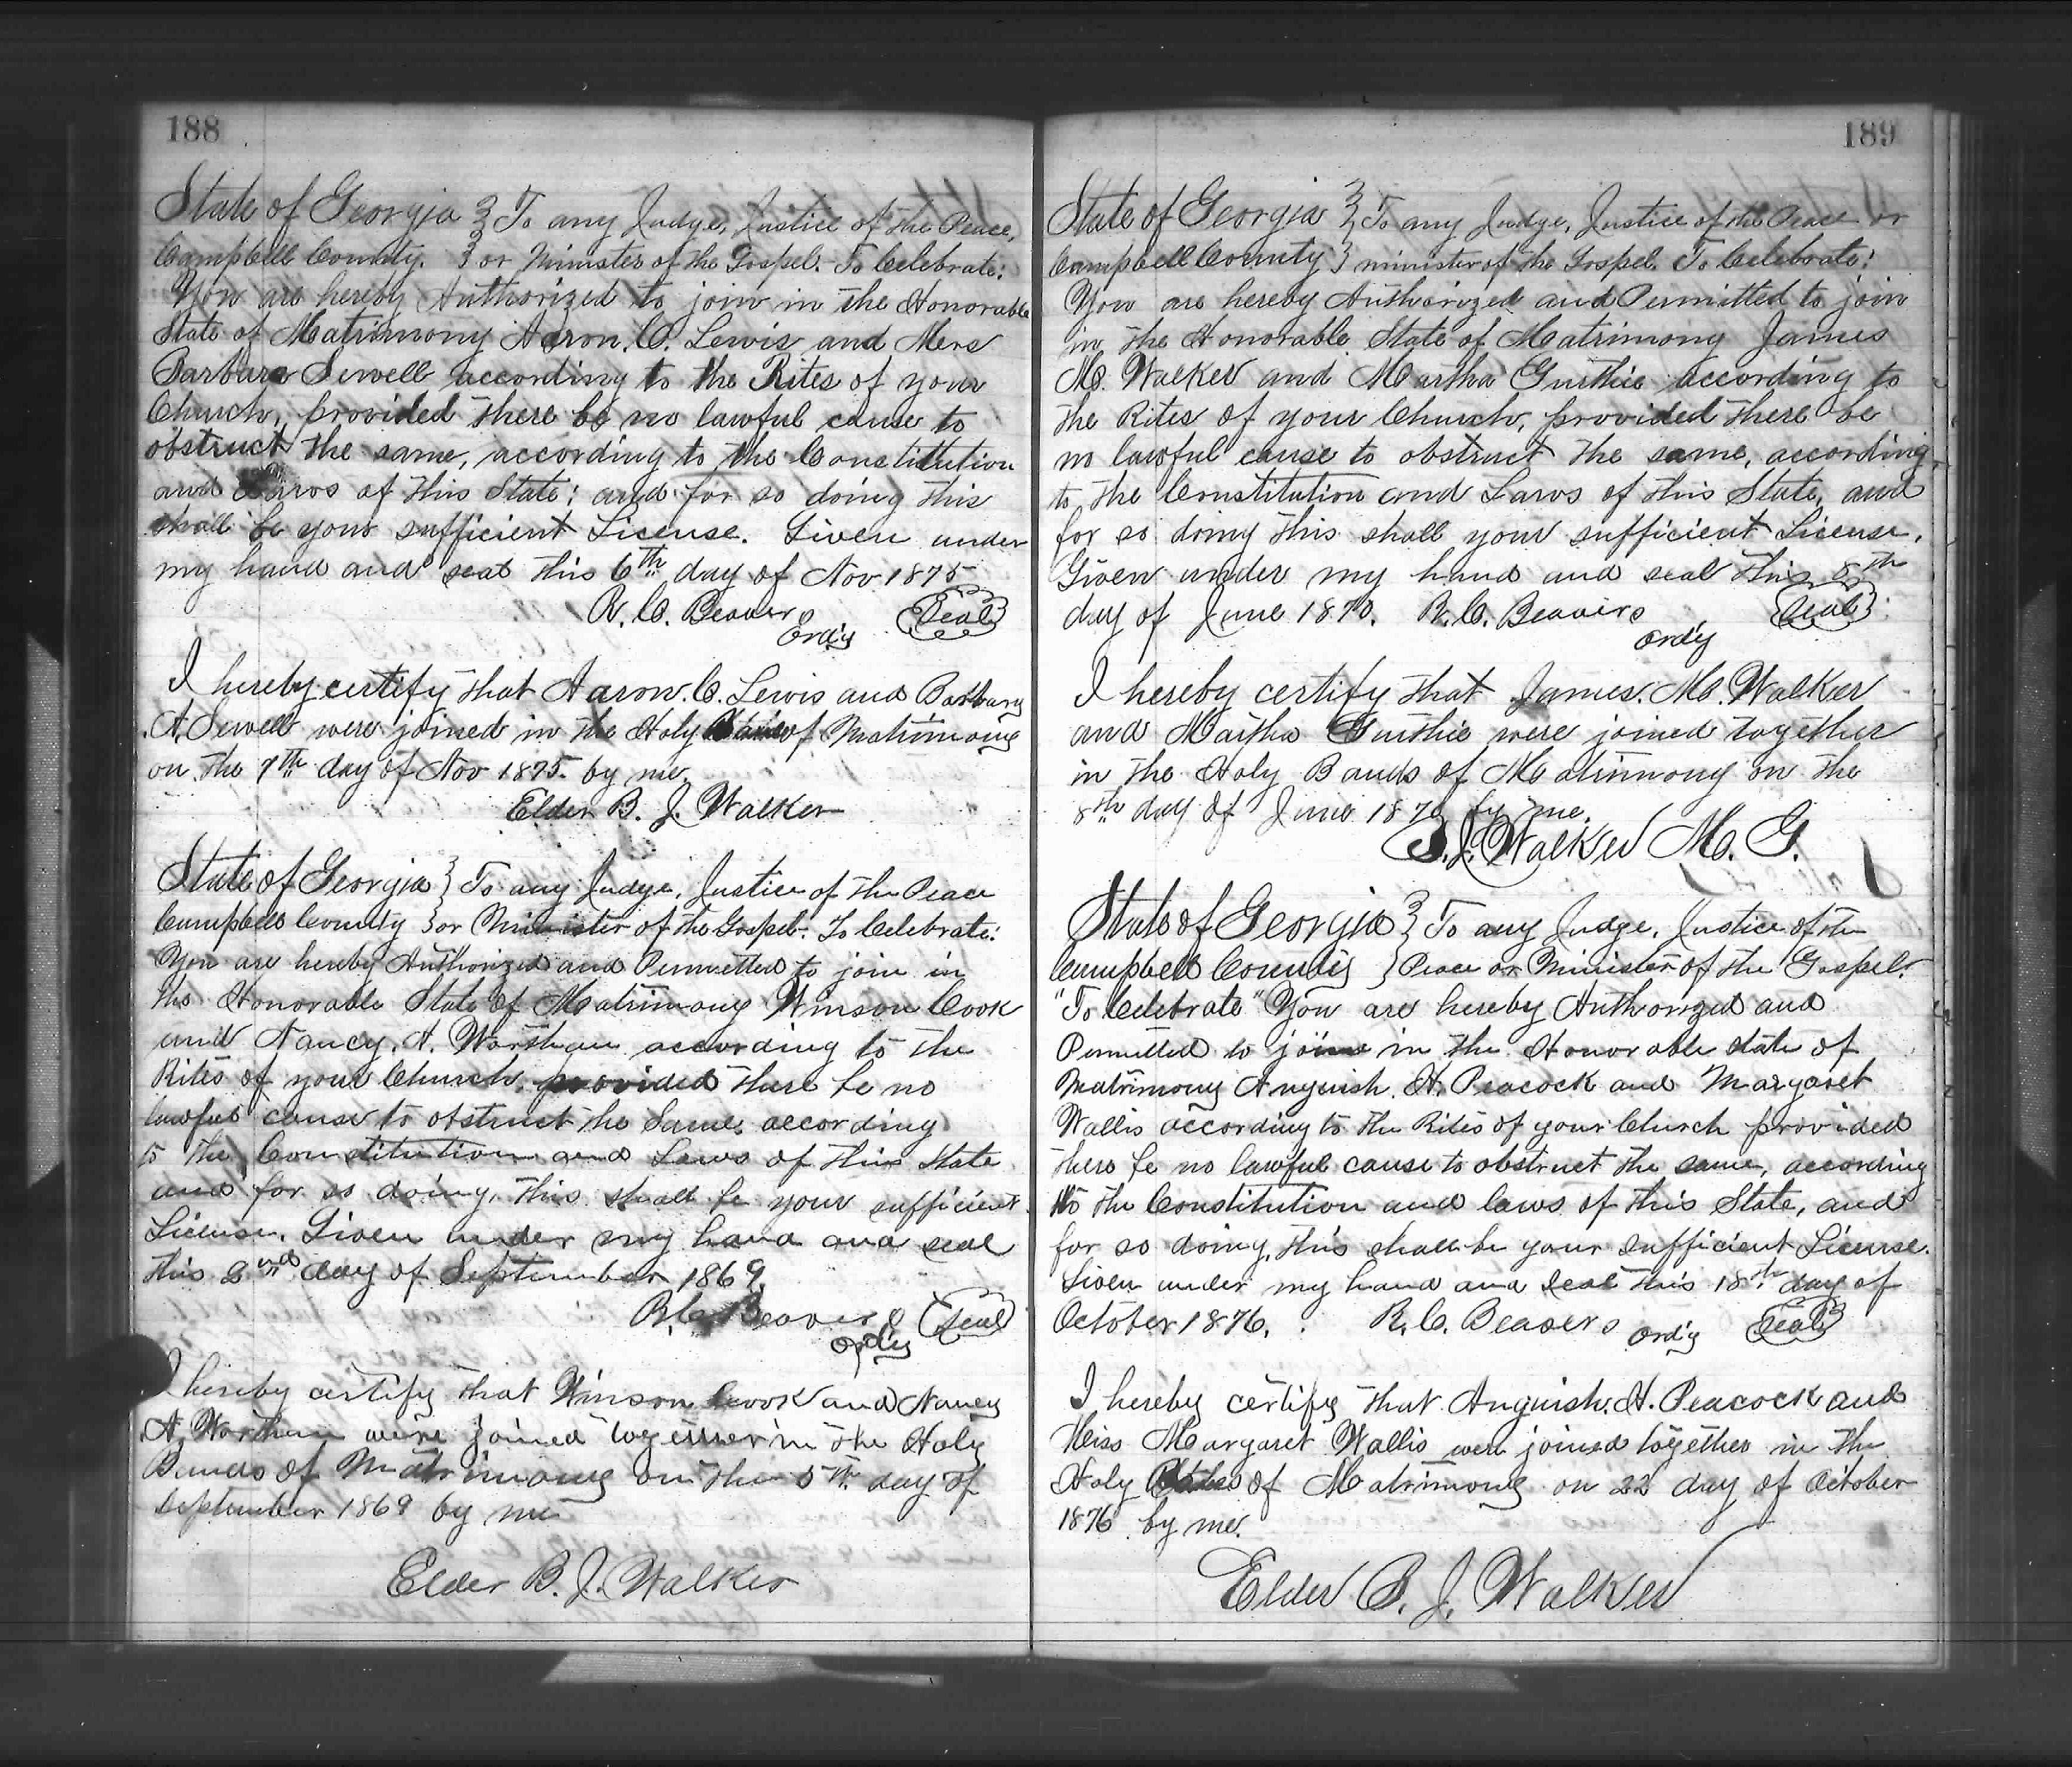 188
State of Georgia } To any Judge, Justice of the Peace,
Campbell County. } or Minister of the Gospel. To Celebrate:
You are hereby Authorized to join in the Honorable
State of Matrimony Aaron. C. Lewis and Mers
Barbara Sewell according to the Rites of your
Church, provided there be no lawful cause to
obstruct the same, according to the Constitution
and Laws of this State; and for so doing this
shall be your sufficient License. Given under
my hand and seal this 6th day of Nov 1875
R. C. Beavers Seal
Ord'y
I hereby certify that Aaron. C. Lewis and Barbary
A. Sewell were joined in the Holy of Matrimony
on the 7th day of Nov 1875. by me.
Elder B. J. Walker
State of Georgia } To any Judge, Justice of the Peace
Campbell County } or Minister of the Gospel. To Celebrate:
You are hereby Authorized and Permitted to join in
the Honorable State of Matrimony Winson Cook
and Nancy. A. Worthan according to the
Rites of your Church, provided there be no
lawful cause to obstruct the Same, according
to the Constitution and Laws of this State
and for so doing, this shall be your sufficient
License. Given under my hand and seal
this 2nd day of September 1869.
R. C. Beavers Seal
Ord'y
I hereby certify that Winson Cook and Nancy
A. Worthan were joined together in the Holy
Bands of Matrimony on the 5th day of
September 1869 by me
Elder B. J. Walker
189
State of Georgia } To any Judge, Justice of the Peace or
Campbell County } minister of the Gospel. To Celebrate:
You are hereby Authorized and Permitted to join
in the Honorable State of Matrimony James
M. Walker and Martha Guthie according to
the Rites of your Church, provided there be
no lawful cause to obstruct the same, according
to the Constitution and Laws of this State, and
for so doing this shall your sufficient License.
Given under my hand and seal this 8th
day of June 1870. R. C. Beavers Seal
Ord'y
I hereby certify that James. M. Walker
and Martha Guthie were joined together
in the Holy Bands of Matrimony on the
8th day of June 1870 by me.
B. J. Walker M. G.
State of Georgia } To any Judge, Justice of the
Campbell County } Peace or Minister of the Gospel.
"To Celebrate" You are hereby Authorized and
Permitted to join in the Honorable state of
Matrimony Anguish. H. Peacock and Margaret
Wallis according to the Rites of your Church provided
there be no lawful cause to obstruct the same, according
to the Constitution and laws of this State, and
for so doing, this shall be your sufficient License.
Given under my hand and Seal this 18th day of
October 1876. R. C. Beavers Ord'y Seal
I hereby certify that Anguish. H. Peacock and
Miss Margaret Wallis were joined together in the
Holy of Matrimony on 22 day of October
1876 by me.
Elder B. J. Walker